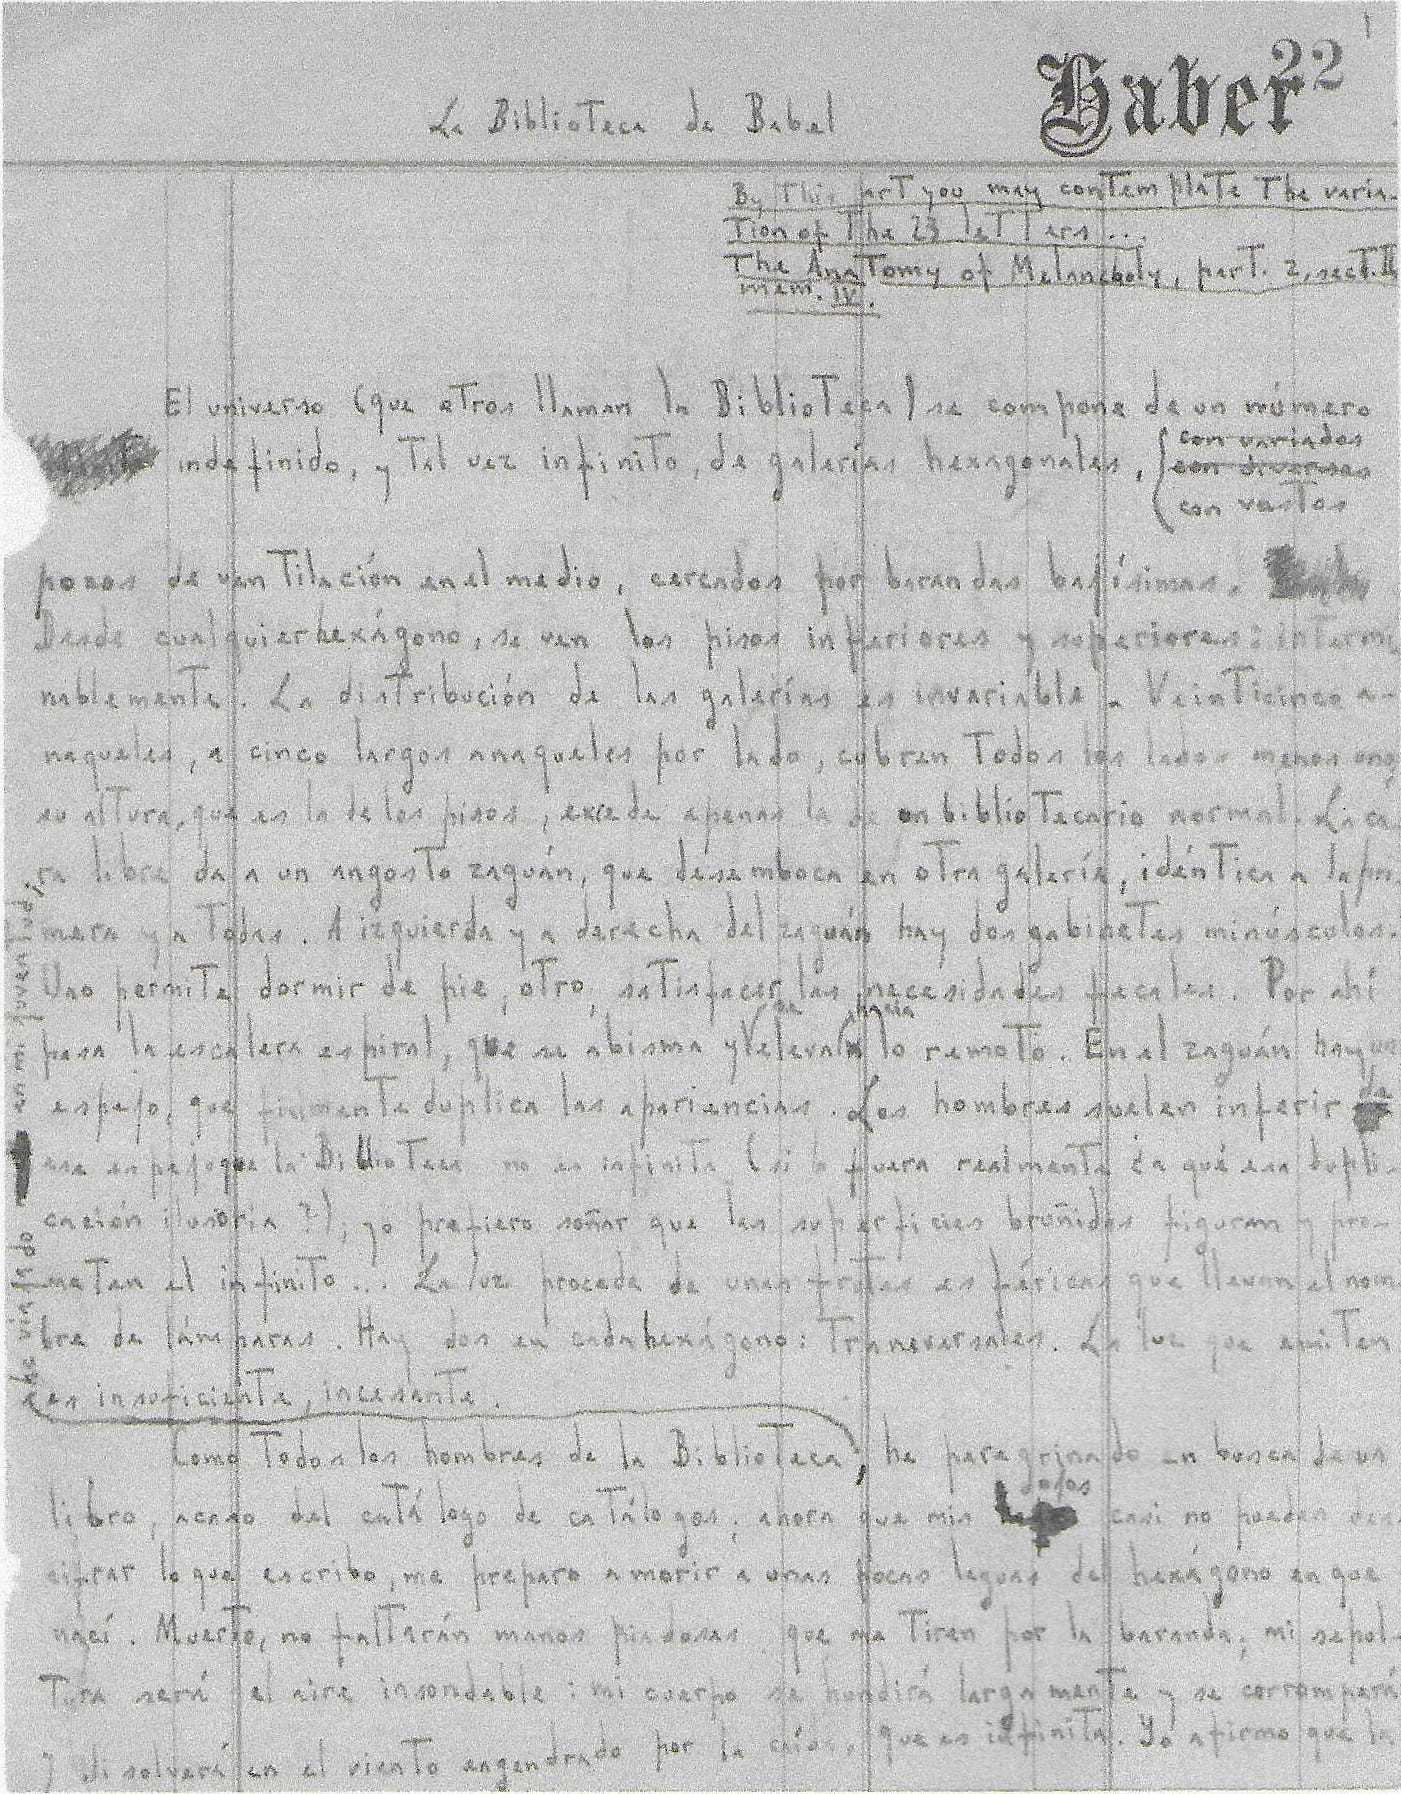 1
Haber 22
La Biblioteca de Babel
By this art you may contemplate the varia-
tion of the 23 letters...
The Anatomy of Melancholy, part. 2, sect. II
mem. IV.
El universo (que otros llaman la Biblioteca) se compone de un número
con variados
indefinido, y tal vez infinito, de galerías hexagonales,
con diversos
con vastos
pozos de ventilación en el medio, cercados por barandas bajísimas.
Desde cualquier hexágono, se ven los pisos inferiores y superiores: intermi
nablemente. La distribución de las galerías es invariable. Veinticinco a-
naqueles, a cinco largos anaqueles por lado, cubren todos los lados menos uno;
su altura, que es la de los pisos, excede apenas la de un bibliotecario normal. La ca-
ra libre da a un angosto zaguán, que desemboca en otra galería, idéntica a la pri-
mera y a todas. A izquierda y a derecha del zaguán hay dos gabinetes minúsculos.
Uno permite dormir de pie; otro, satisfacer las necesidades fecales. Por ahí
se hacia
pasa la escalera espiral, que se abisma y eleva lo remoto. En el zaguán hay un
espejo, que fielmente duplica las apariencias. Los hombres suelen inferir de
ese espejo que la Biblioteca no es infinita (si lo fuera realmente ¿a qué esa dupli-
cación ilusoria?); yo prefiero soñar que las superficies bruñidas figuran y pro-
meten el infinito... La luz procede de unas frutas esféricas que llevan el nom
bre de lámparas. Hay dos en cada hexágono: transversales. La luz que emiten
es insuficiente, incesante.
Como todos los hombres de la Biblioteca, he peregrinado en busca de un
he viajado en mi juventud;
ojos
libro, acaso del catálogo de catálogos; ahora que mis casi no pueden des
cifrar lo que escribo, me preparo a morir a unas pocas leguas del hexágono en que
nací. Muerto, no faltarán manos piadosas que me tiren por la baranda; mi sepul-
tura será el aire insondable: mi cuerpo se hundirá largamente y se corromperá
y disolverá en el viento engendrado por la caída, que es infinita. Yo afirmo que la